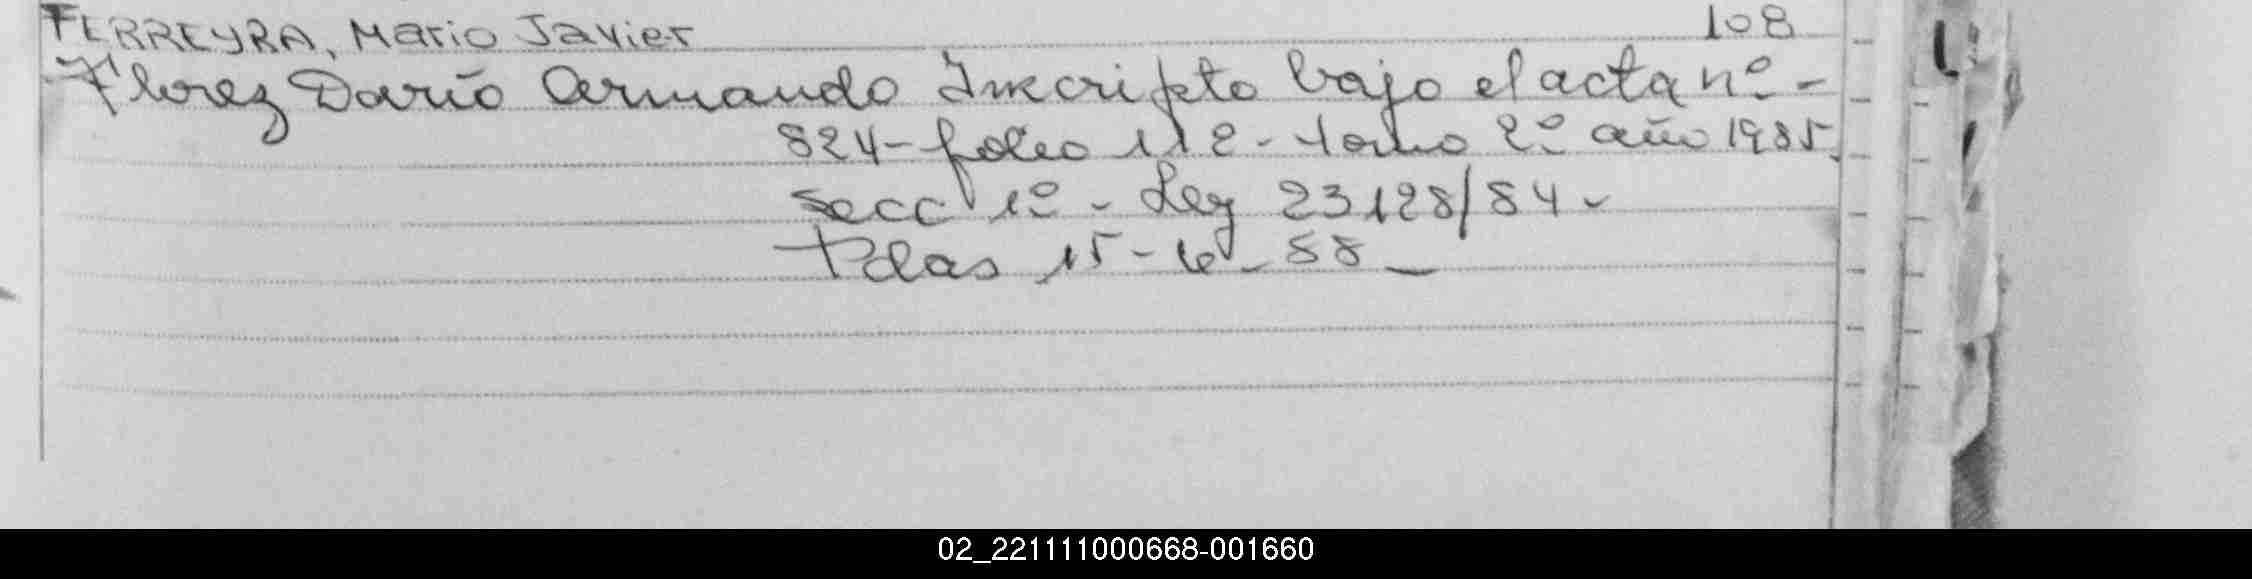 FERREYRA, Mario Javier 108
Florez Darío Armando Inscripto bajo el acta nº -
824 - folio 112 - tomo 2º año 1985.
Secc 1º - Ley 23128/84 -
Pdas 15 - 6 - 88 -
02_221111000668-001660